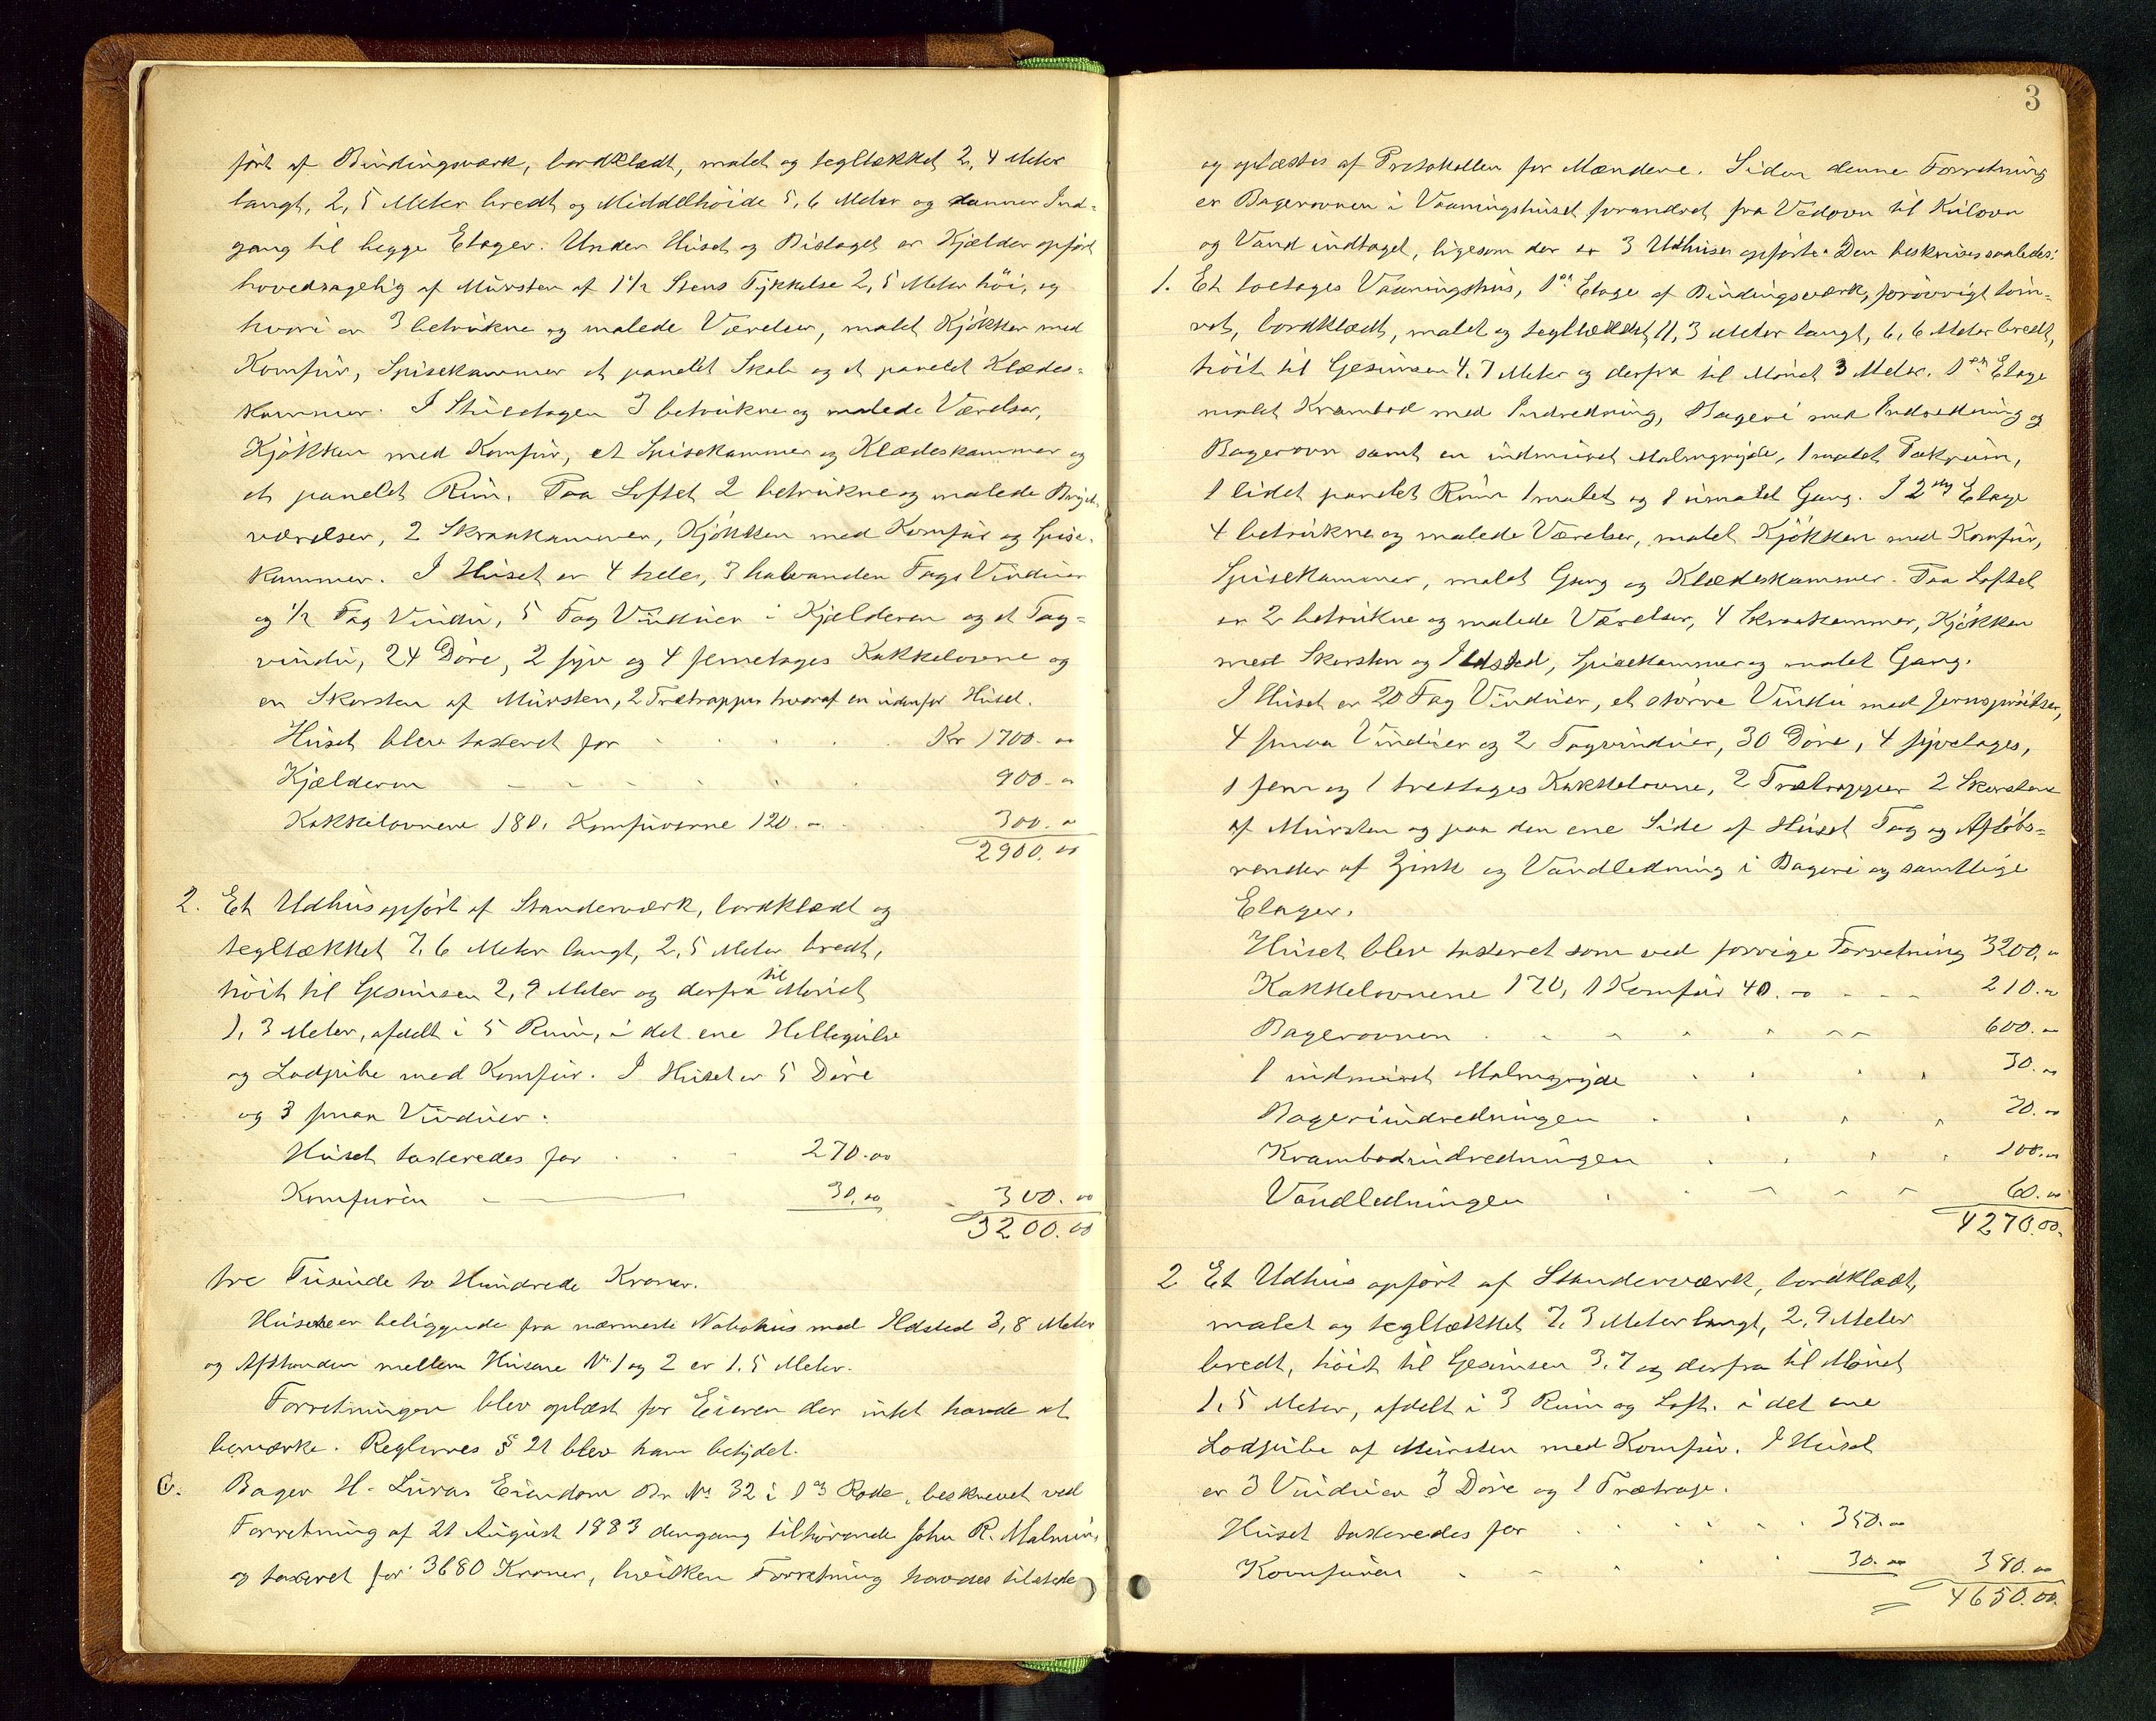 ført af Bindingsværk, bordklædt, malet og tegltækket 2,4 Meter
langt, 2,5 Meter bredt og Middelhøide 5,6 Meter og danner Ind-
gang til begge Etager. Under Huset og Bislaget er Kjælder opført
hovedsagelig af Mursten af 1 1/2 Stens Tykkelse 2,5 Meter høi, og
hvori er 3 betrukne og malede Værelser, malet Kjøkken med
Komfur, Spisekammer et panelet Skab og et panelet Klædes-
kammer. I Stueetagen 3 betrukne og malede Værelser,
Kjøkken med Komfur, et Spisekammer og Klædeskammer og
et panelet Rum. Paa Loftet 2 betrukne og malede
værelser, 2 Skraakammer, Kjøkken med Komfur og Spise-
kammer. I Huset er 4 hele, 3 halvanden Fags Vinduer
og 1/2 Fag Vindu, 5 Fag Vinduer i Kjælderen og et Tag-
vindu, 24 Døre, 2 syv og 4 femetages Kakkelovne og
en Skorsten af Mursten, 2 Trætrapper hvoraf en udenfor Huset.
Huset blev taxeret for Kr 1700.00
Kjælderen 900.00
Kakkelovnene 180, Komfurerne 120.00 300.00
2900.00
2. Et Udhus opført af Standerværk, bordklædt og
tegltækket 7,6 Meter langt, 2,5 Meter bredt,
høit til Gesimsen 2,9 Meter og derfra til Mønet
1,3 Meter, afdelt i 5 Rum, i det ene Hellegulv
og Lodpibe med Komfur. I Huset er 5 Døre
og 3 smaa Vinduer.
Huset taxeredes for 270.00
Komfuren 30.00 300.00
3200.00
tre Tusinde to Hundrede Kroner.
Husene er beliggende fra nærmeste Nabohus med Ildsted 3,8 Meter
og Afstanden mellem Husene No 1 og 2 er 1.5 Meter.
Forretningen blev oplæst for Eieren der intet havde at
bemærke. Reglernes § 21 blev ham betydet.
Bager H. Luras Eiendom Br No 32 i 13 Rode, beskrevet ved
Forretning af 21 August 1883 dengang tilhørende John R. Malmin,
og taxeret for 3680 Kroner, hvilken Forretning havdes tilstede
3
og oplæstes af Protokollen for Mændene. Siden denne Forretning
er Bagerovnen i Vaaningshuset forandret fra Vedovn til Kulovn
og Vand indtaget, ligesom der er 3 Udhuse opførte. Den beskrives saaledes:
1. Et toetages Vaaningshus, 1ste Etage af Bindingsværk, forøvrigt tøm-
ret, bordklædt, malet og tegltækket, 11,3 Meter langt, 6,6 Meter bredt,
høit til Gesimsen 4.7 Meter og derfra til Mønet 3 Meter. I 1ste Etage
malet Krambod med Indredning, Bageri med Indredning og
Bagerovn samt en indmuret Malmgryde, 1 malet Pakrum,
1 lidet panelet Rum 1 malet og 1 umalet Gang. I 2den Etage
4 betrukne og malede Værelser, malet Kjøkken med Komfur,
Spisekammer, malet Gang og Klædeskammer. Paa Loftet
er 2 betrukne og malede Værelser, 4 Skraakammer, Kjøkken
med Skorsten og Ildsted, Spisekammer og malet Gang.
I Huset er 20 Fag Vinduer, et større Vindu med Jernsprosser,
4 smaa Vinduer og 2 Tagvinduer, 30 Døre, 4 syvetages,
1 fem og 1 treetages Kakkelovne, 2 Trætrapper 2 Skorstene
af Mursten og paa den ene Side af Huset Tag og Afløbs-
render af Zink og Vandledning i Bageri og samtlige
Etager.
Huset blev taxeret som ved forrige Forretning 3200.00
Kakkelovnene 170, 1 Komfur 40.00 210.00
Bagerovnen 600.00
1 indmuret Malmgryde 30.00
Bageriindredningen 70.00
Krambodindredningen 100.00
Vandledningen 60.00
4270.00.
2 Et Udhus opført af Standerværk, bordklædt,
malet og tegltækket 7,3 Meter langt, 2,9 Meter
bredt, høit til Gesimsen 3.7 og derfra til Mønet
1,5 Meter, afdelt i 3 Rum og Loft. i det ene
Lodpibe af Mursten med Komfur. I Huset
er 3 Vinduer 3 Døre og 1 Trætrap.
Huset taxeredes for 350.00
Komfuren 30.00 380.00
4650.00.